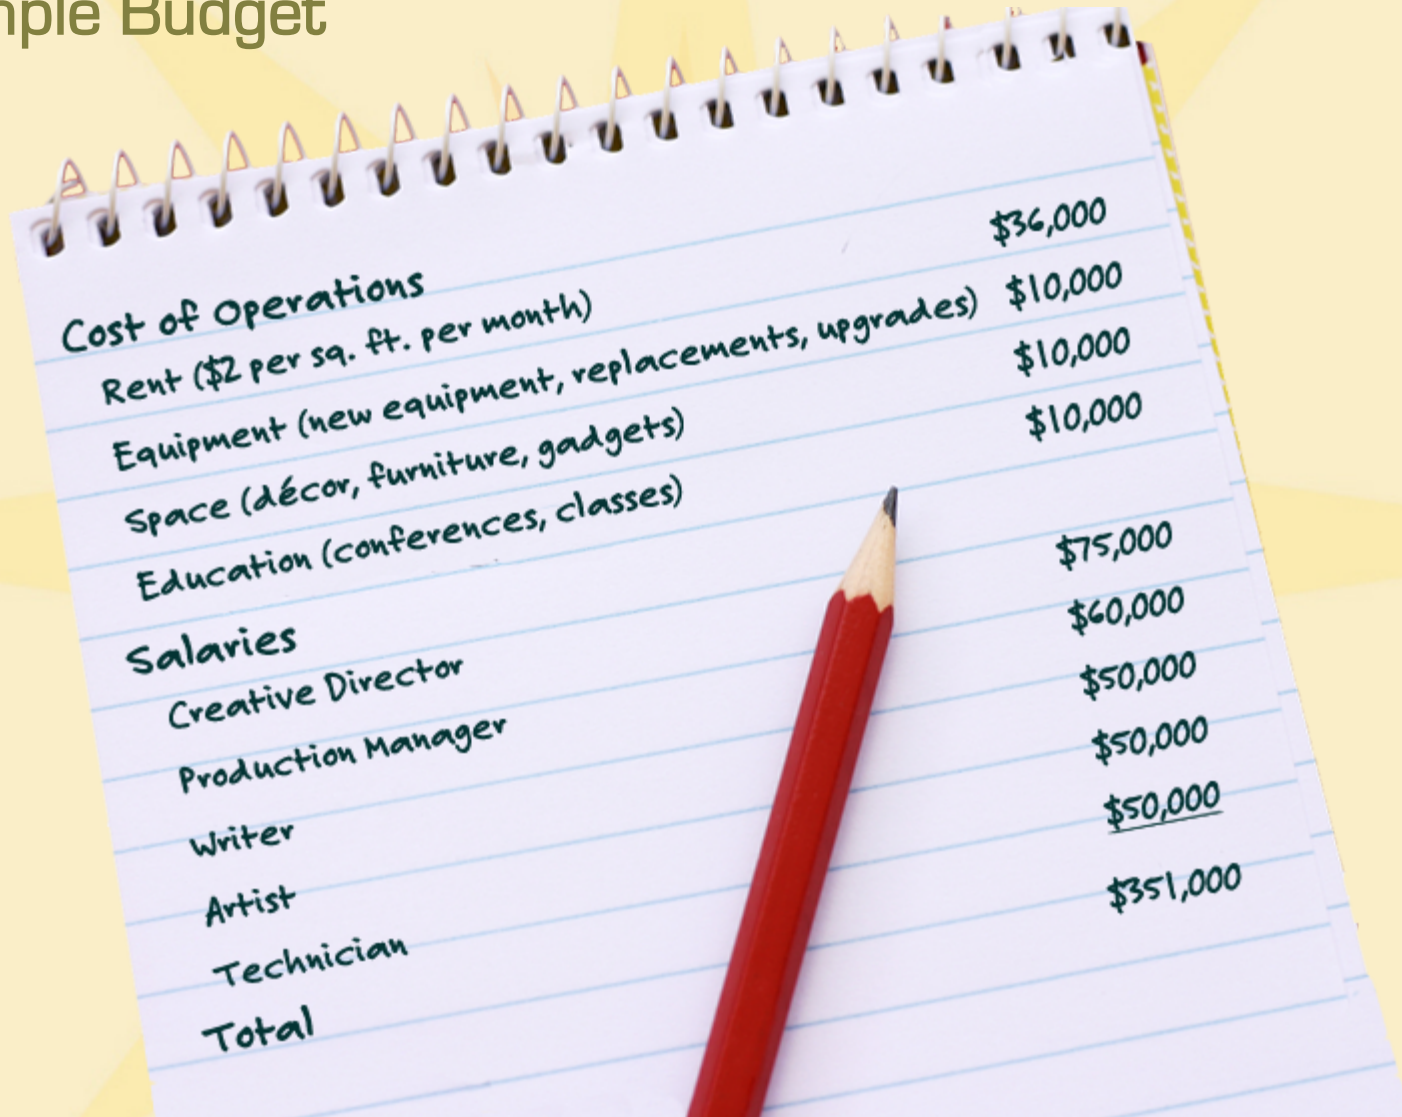 Budget
Cost of Operations
Rent ($2 per sq. ft. per month) $36,000
Equipment (new equipment, replacements, upgrades) $10,000
Space (décor, furniture, gadgets) $10,000
Education (conferences, classes) $10,000
Salaries
Creative Director $75,000
Production Manager $60,000
Writer $50,000
Artist $50,000
Technician $50,000
Total $351,000